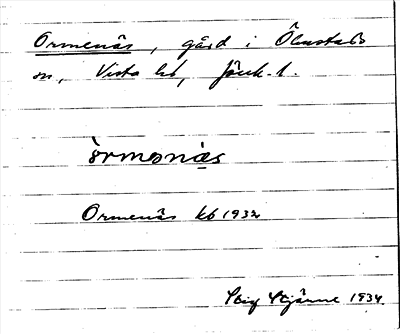 Ormenäs, gård i Ölmstads
sn, Vista hd, Jönk. l.
òrmenä̀s
Ormenäs kb 1932
Stig Stjärne 1934.